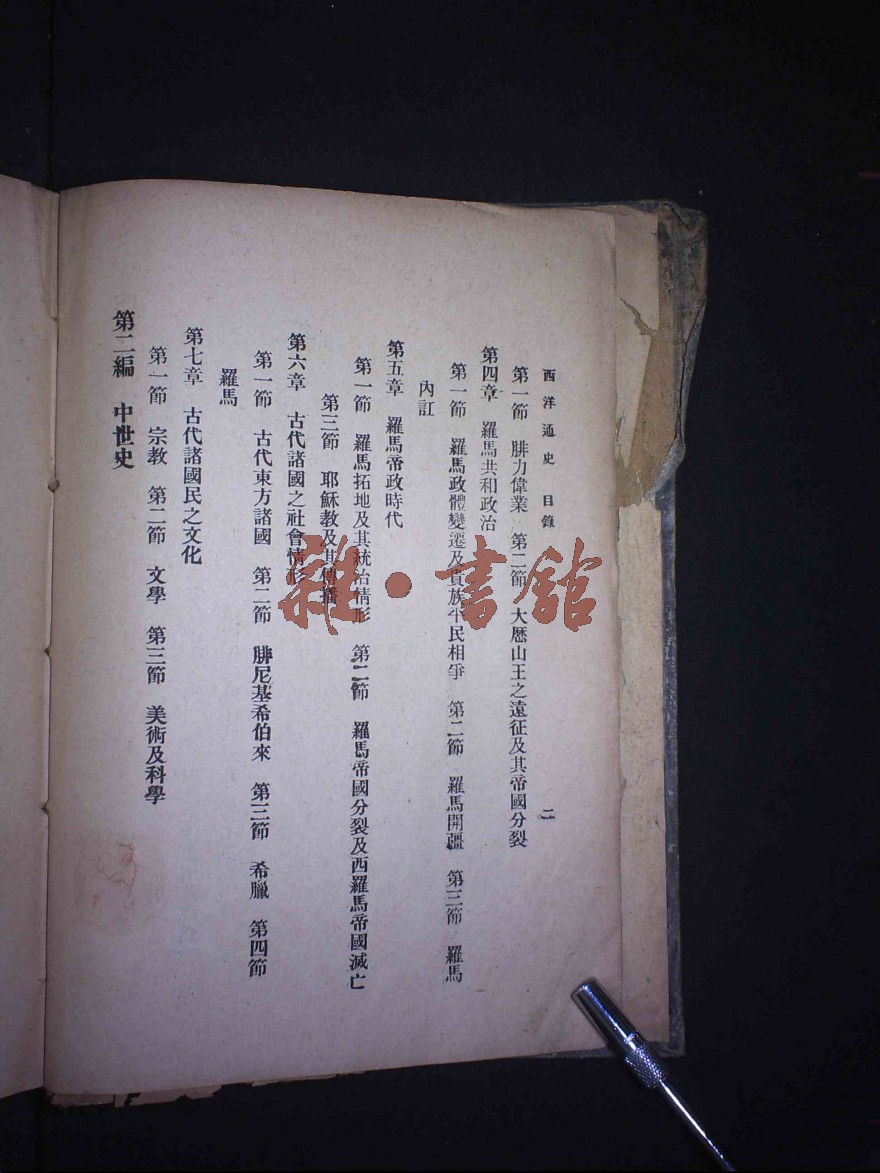 西洋通史 目錄 二
第一節 腓力偉業 第二節 大歷山王之遠征及其帝國分裂
第四章 羅馬共和政治
第一節 羅馬政體變遷及貴族平民相爭 第二節 羅馬開疆 第三節 羅馬
內訌
第五章 羅馬帝政時代
第一節 羅馬拓地及其統治情形 第二節 羅馬帝國分裂及西羅馬帝國滅亡
第三節 耶穌教及其傳播
第六章 古代諸國之社會情形
第一節 古代東方諸國 第二節 腓尼基希伯來 第三節 希臘 第四節
羅馬
第七章 古代諸國民之文化
第一節 宗教 第二節 文學 第三節 美術及科學
第二編 中世史
雜·書館